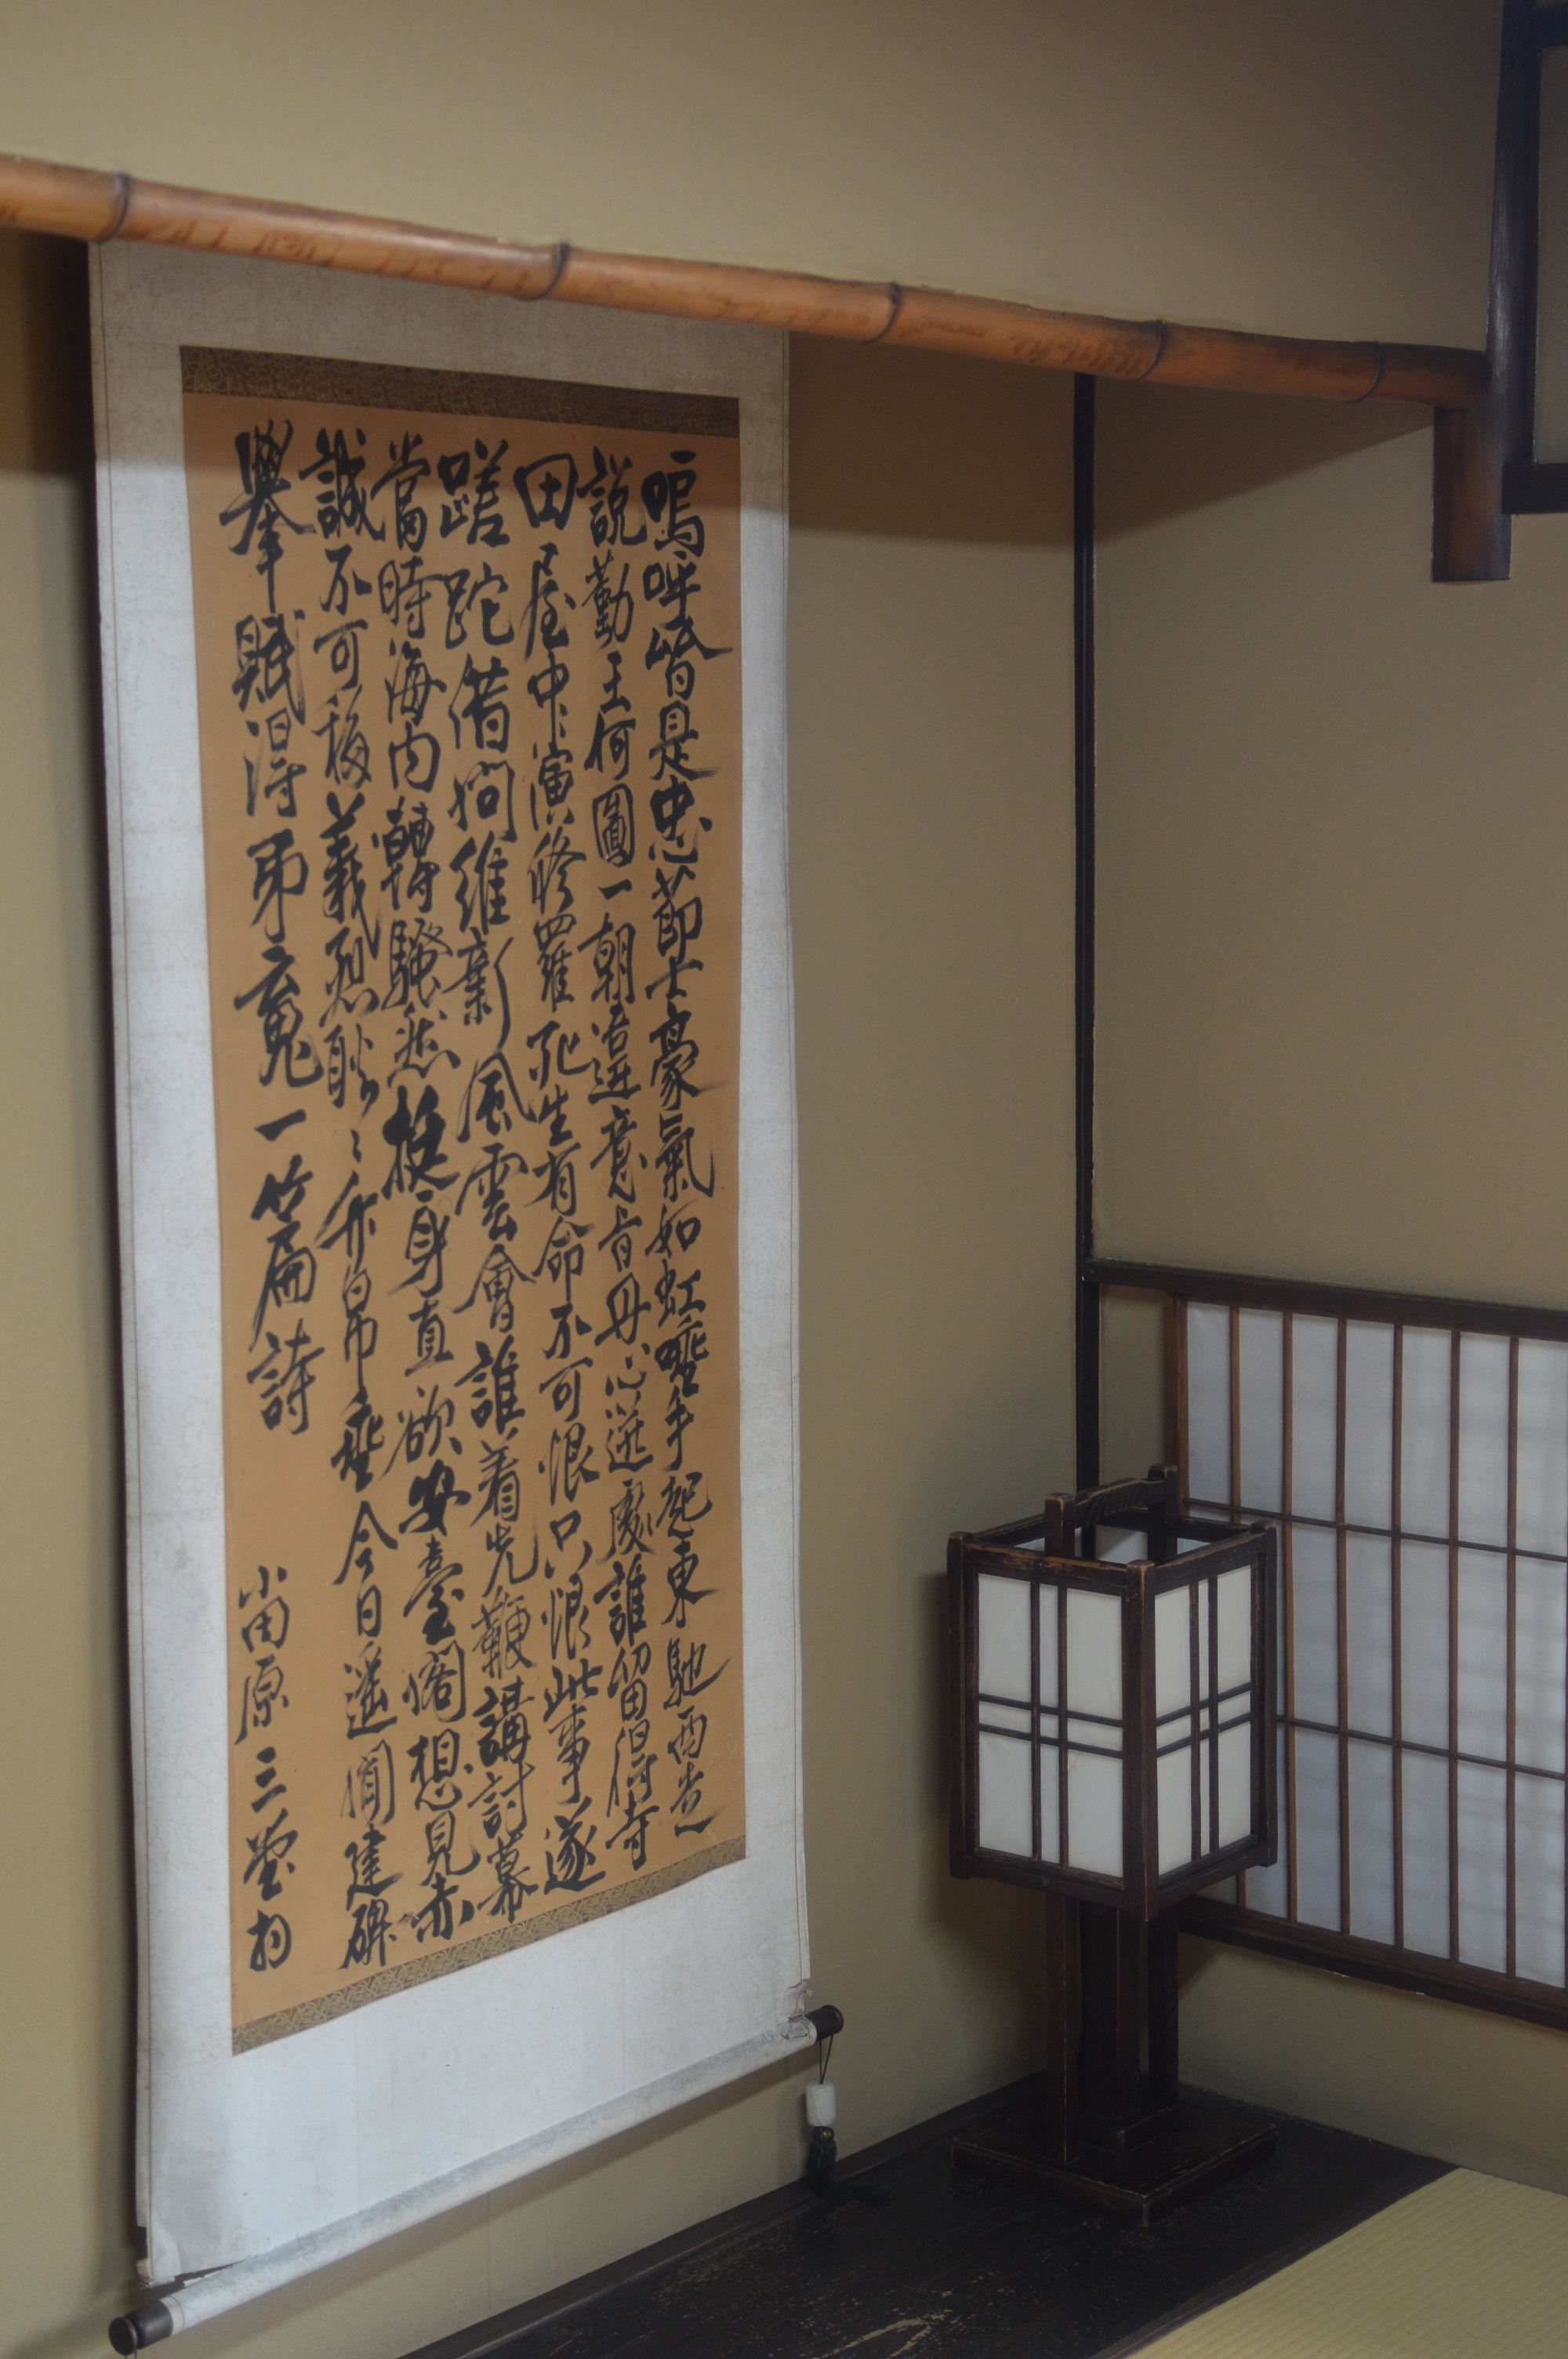 嗚呼皆是忠節士豪氣如虹唾手起東馳西走
説勤王何圖一朝意忤丹心迸處誰留得寺
田屋中演修羅死生有命不可恨只恨此事遂
蹉跎借問維新風雲會誰着先鞭講討幕
當時海内轉騒然挺身直欲安臺閣想見赤
誠不可移義烈耿々弁帛垂今日遥聞建碑
擧賦得弔魂一篇詩
小田原三